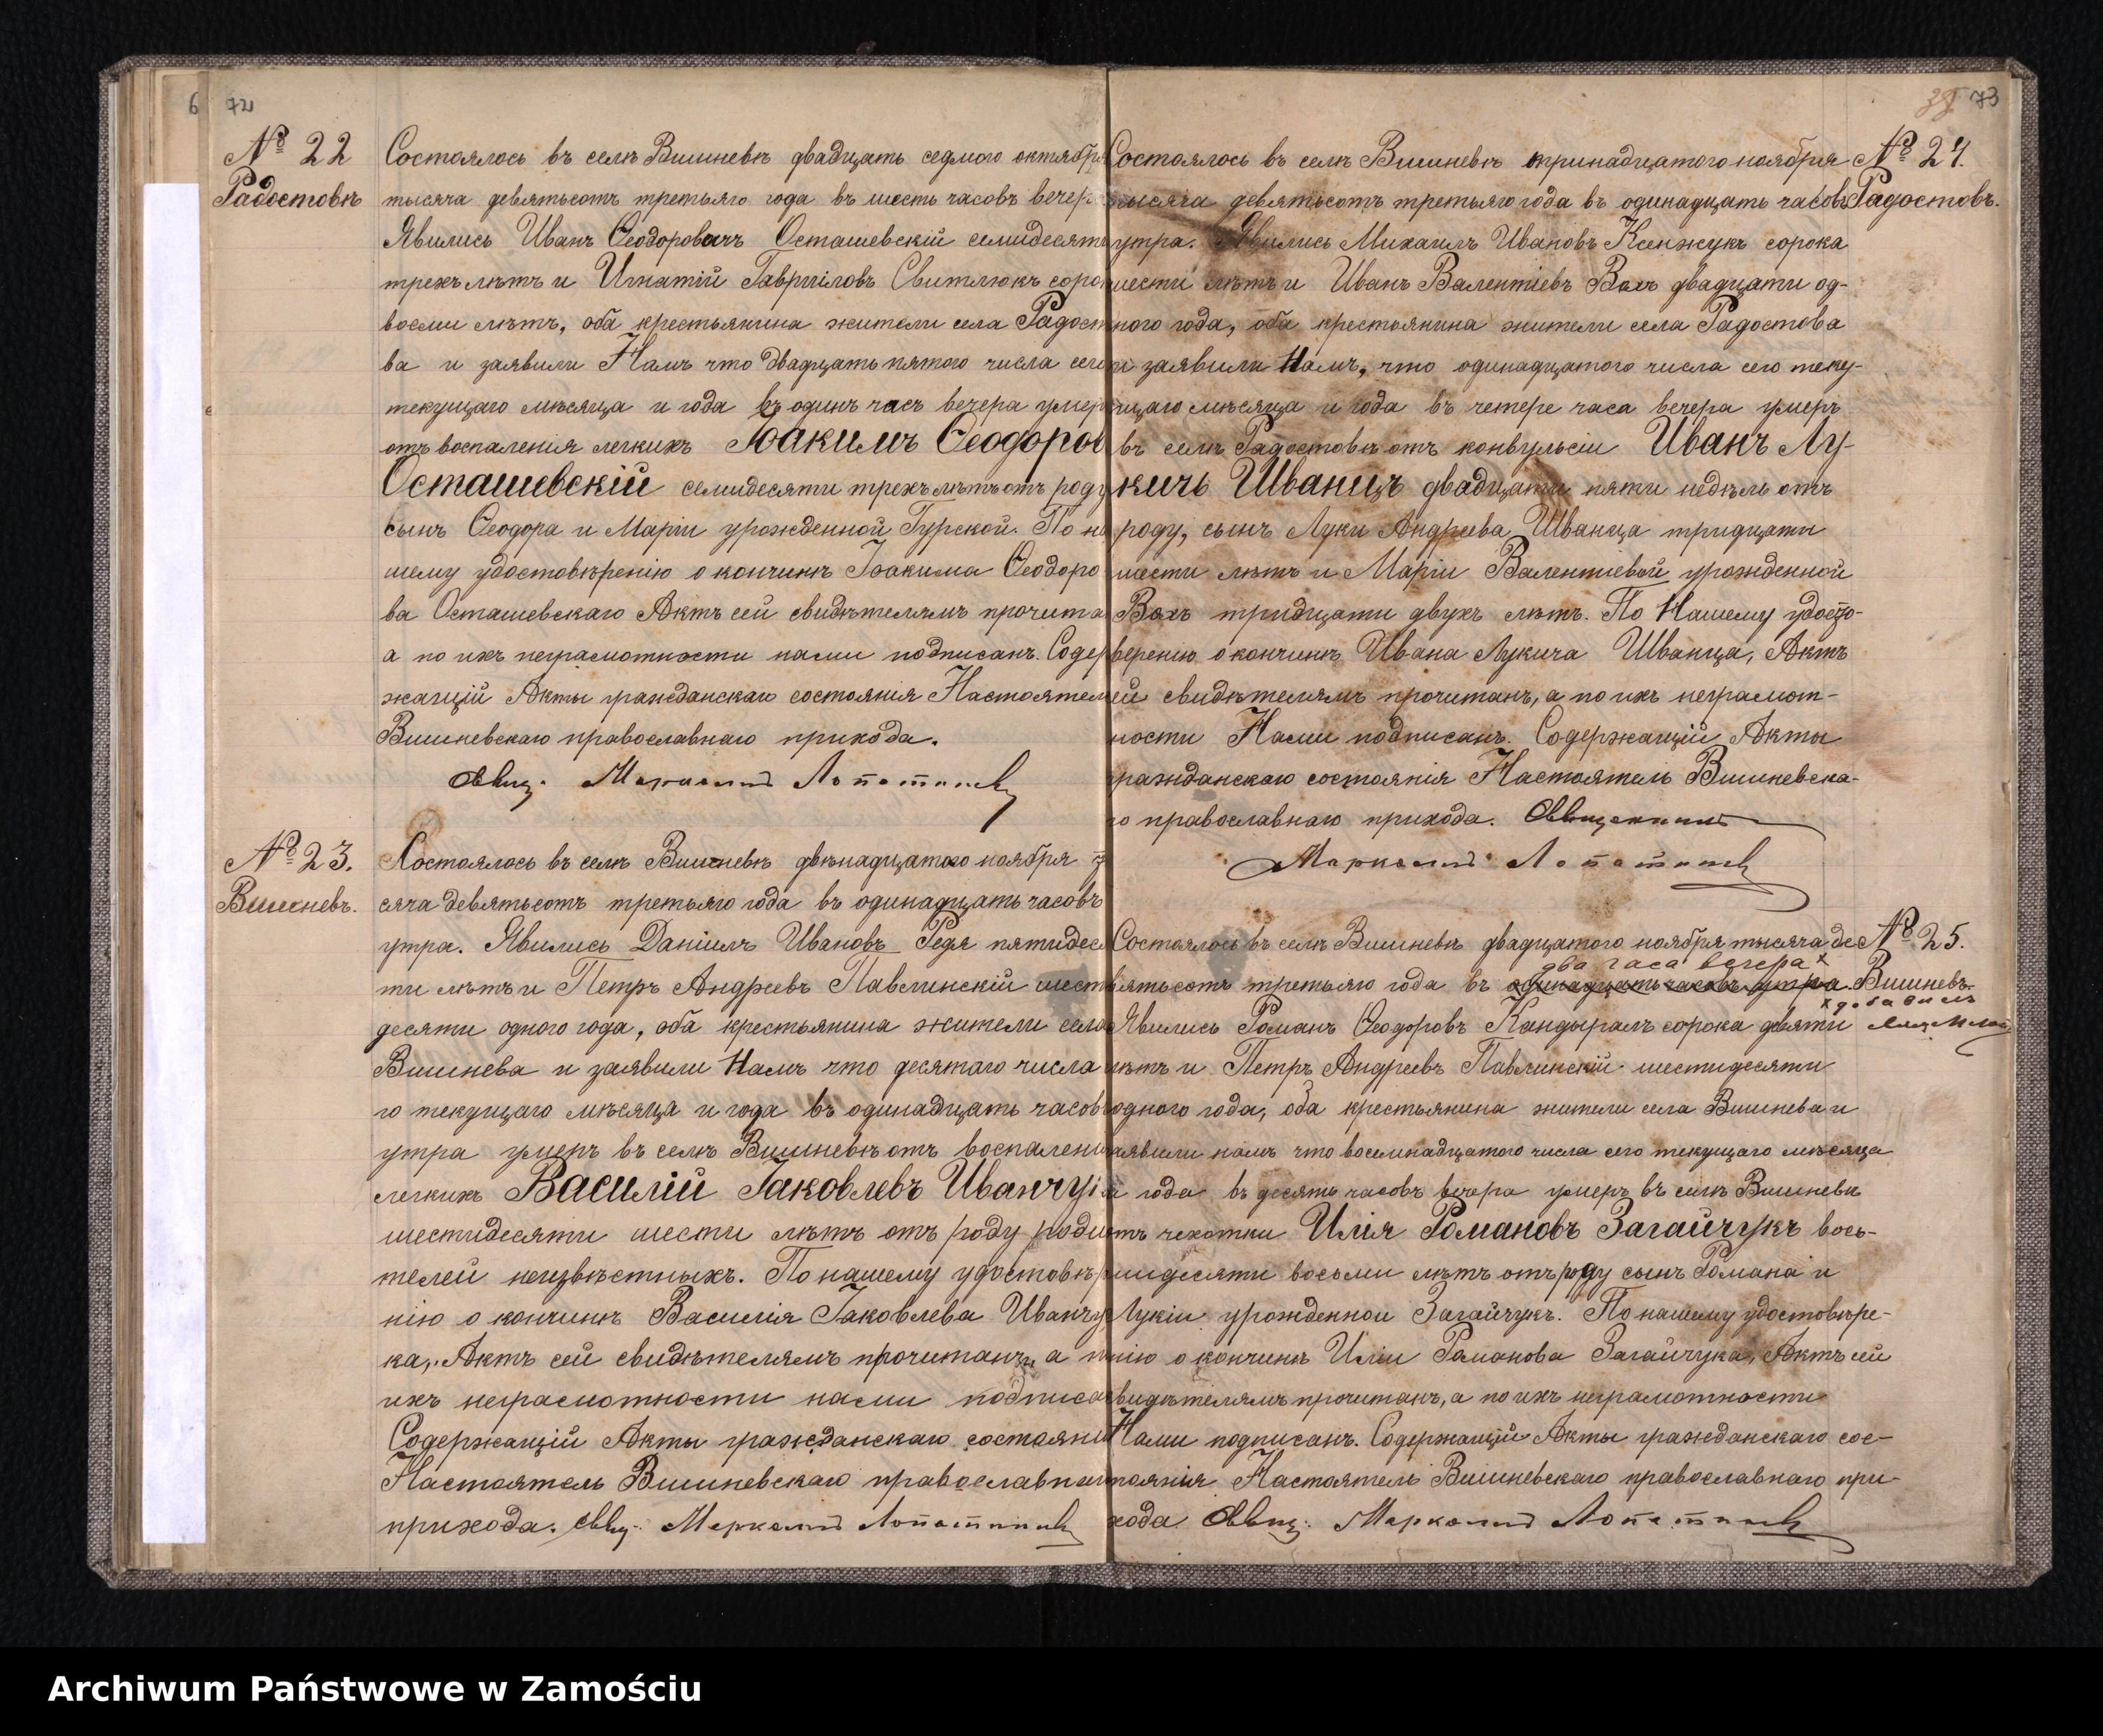 6 72
№ 22
Радостовъ
Состоялось въ селѣ Вишневѣ двадцать седмого октябр
тысяча девятьсотъ третьяго года въ шесть часовъ вечер
Явились Иванъ Ѳеодоровичъ Осташевскій семидесят
трехъ лѣтъ и Игнатій Гавріиловъ Свитлюкъ соро
восми лѣтъ, оба крестьянина жители села Радост
ва и заявили Намъ что двадцать пятого числа сего
текущаго мѣсяца и года въ одинъ часъ вечера умер
отъ воспаленія легкихъ Іоакимъ Ѳеодоров
Осташевскій семидесяти трехъ лѣтъ отъ роду
сынъ Ѳеодора и Маріи урожденной Гурской. По на
шему удостовѣренію о кончинѣ Іоакима Ѳеодоро
ва Осташевскаго Актъ сей свидѣтелямъ прочита
а по ихъ неграмотности нами подписанъ. Содер
жащій Акты гражданскаго состоянія Настоятел
Вишневскаго православнаго прихода.
Свящ. Маркеллъ Лопатинск
№ 23.
Вишневъ.
Состоялось въ селѣ Вишневѣ двѣнадцатого ноября т
сяча девятьсотъ третьяго года въ одинадцать часовъ
утра. Явились Даніилъ Ивановъ Редя пятидес
ти лѣтъ и Петръ Андреевъ Павлинскій шест
десяти одного года, оба крестьянина жители села
Вишнева и заявили Намъ что десятаго числа
го текущаго мѣсяца и года въ одинадцать часов
утра умеръ въ селѣ Вишневѣ отъ воспалені
легкихъ Василій Іаковлевъ Иванчу
шестидесяти шести лѣтъ отъ роду роди
телей неизвѣстныхъ. По нашему удостовѣр
нію о кончинѣ Василія Іаковлева Иванчу
ка, Актъ сей свидѣтелямъ прочитанъ, а п
ихъ неграмотности нами подписа
Содержащій Акты гражданскаго состояні
Настоятель Вишневскаго православна
прихода. Свящ. Маркеллъ Лопатинск
73
№ 24.
Радостовъ.
Состоялось въ селѣ Вишневѣ тринадцатого ноября
тысяча девятьсотъ третьяго года въ одинадцать часовъ
утра. Явились Михаилъ Ивановъ Ксенжукъ сорока
шести лѣтъ и Иванъ Валентіевъ Вахъ двадцати од-
ного года, оба крестьянина жители села Радостова
и заявили Намъ, что одинадцатого числа сего теку-
щаго мѣсяца и года въ четере часа вечера умеръ
въ селѣ Радостовѣ отъ конвульсіи Иванъ Лу-
кичь Шванцъ двадцати пяти недѣль отъ
роду, сынъ Луки Андреева Шванца тридцати
шести лѣтъ и Маріи Валентіевой урожденной
Вахъ тридцати двухъ лѣтъ. По Нашему удосто-
веренію о кончинѣ Ивана Лукича Шванца, Актъ
ей свидѣтелямъ прочитанъ, а по ихъ неграмот-
ности Нами подписанъ. Содержащій Акты
гражданскаго состоянія Настоятель Вишневска-
го православнаго прихода. Священникъ
Маркеллъ Лопатинск
№ 25.
Вишневъ.
Состоялось въ селѣ Вишневѣ двадцатого ноября тысяча де
два часа вечера х
вятьсотъ третьяго года въ одинадцать часовъ утра
х добавилъ
Явились Романъ Ѳеодоровъ Кандыралъ сорока девяти
лѣтъ и Петръ Андреевъ Павлинскій шестидесяти
одного года, оба крестьянина жители села Вишнева и
заявили намъ что восемнадцатого числа сего текущаго мѣсяца
и года въ десять часовъ вечера умеръ въ селѣ Вишневѣ
отъ чехотки Илія Романовъ Загайчукъ вось-
мидесяти восьми лѣтъ отъ роду сынъ Романа и
Лукіи урожденной Загайчукъ. По нашему удостовѣре-
нію о кончинѣ Иліи Романова Загайчука, Актъ сей
видѣтелямъ прочитанъ, а по ихъ неграмотности
Нами подписанъ. Содержащій Акты гражданскаго сос-
тоянія Настоятель Вишневскаго православнаго при-
хода Свящ. Маркеллъ Лопатинск
Archiwum Państwowe w Zamościu